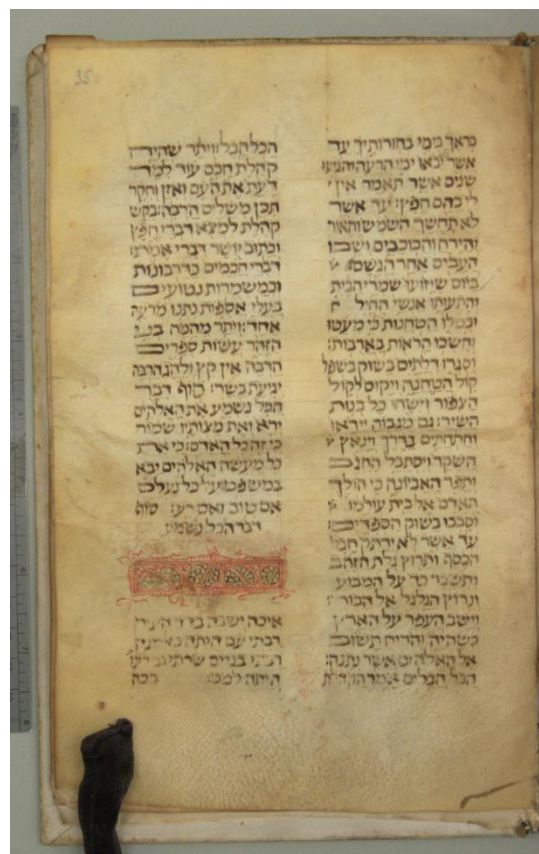 35
בראך בימי בחורותיך עד
אשר יבאו ימי הרעה והגיעו
שנים אשר תאמר אין
לי בהם חפץ: עד אשר
לא תחשך השמש והאור
והירח והכוכבים ושבו
העבים אחר הגשם:
ביום שיזועו שמרי הבית
והתעותו אנשי החיל
ובטלו הטחנות כי מעטו
וחשכו הראות בארבות:
וסגרו דלתים בשוק בשפל
קול הטחנה ויקום לקול
הצפור וישחו כל בנות
השיר: גם מגבוה ייראו
וחתחתים בדרך וינאץ
השקד ויסתבל החגב
ותפר האביונה כי הולך
האדם אל בית עולמו
וסבבו בשוק הספדים:
עד אשר לא ירתק חבל
הכסף ותרוץ גלת הזהב
ותשבר כד על המבוע
ונרוץ הגלגל אל הבור:
וישב העפר על הארץ
כשהיה והרוח תשוב
אל האלהים אשר נתנה:
הבל הבלים אמר הקהלת
הכל הבל: ויתר שהיה
קהלת חכם עוד למד
דעת את העם ואזן וחקר
תקן משלים הרבה: בקש
קהלת למצא דברי חפץ
וכתוב יושר דברי אמת:
דברי חכמים כדרבונות
וכמשמרות נטועים
בעלי אספות נתנו מרעה
אחד: ויתר מהמה בני
הזהר עשות ספרים
הרבה אין קץ ולהג הרבה
יגיעת בשר: סוף דבר
הכל נשמע את האלהים
ירא ואת מצותיו שמור
כי זה כל האדם: כי את
כל מעשה האלהים יבא
במשפט על כל נעלם
אם טוב ואם רע: סוף
דבר הכל נשמע
איכה ישבה בדד העיר
רבתי עם היתה כאלמנה
רבתי בגוים שרתי במדינו
היתה למס: בכה